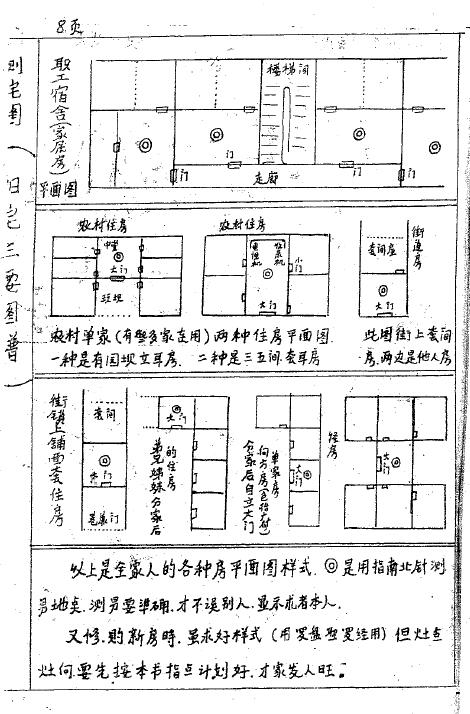 8页
职工宿舍(家居房)
平面图
楼梯间
门
门
门
门
走廊
农村住房
农村住房
街道房
中堂
大门
班坝
电视机
收录机
小门
大门
套间屋
大门
农村单家(有些多家连用)两种住房平面图.
一种是有国坝立耳房. 二种是三五间套耳房
此图街上套间
房.两边是他人房
街镇上铺面套住房
套间
大门
巷巷门
大门
弟兄姊妹分家后
的住房
分家后自立大门
向方房(包括农村)
单家房
大门
住房
大门
以上是全家人的各种房平面图样式.◎是用指南北针测
量地点.测量要準确.才不误别人.显示求者本人.
又修.购新房時.虽求好样式(用罗盘型罗经用)但灶台
灶向.要先.按本书指点计划好.才家发人旺。